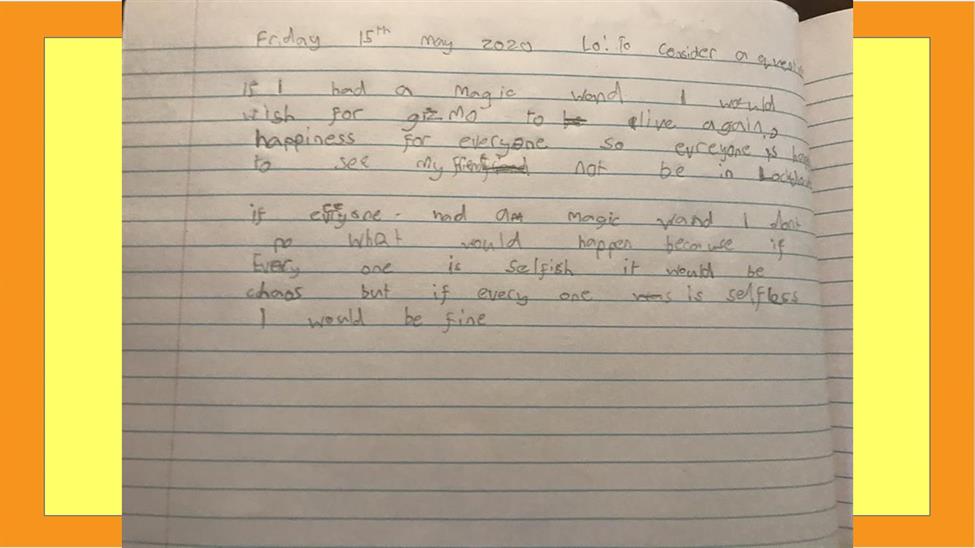 Friday 15th May 2020 Lo: To Consider a
if I had a magic wand I would
wish for gizmo to alive again,
happiness for everyone so evreyone is
to see my friends not be in
if everyone had a magic wand I dont
no what would happen because if
Every one is selfish it would be
chaos but if every one is selfless
I would be fine